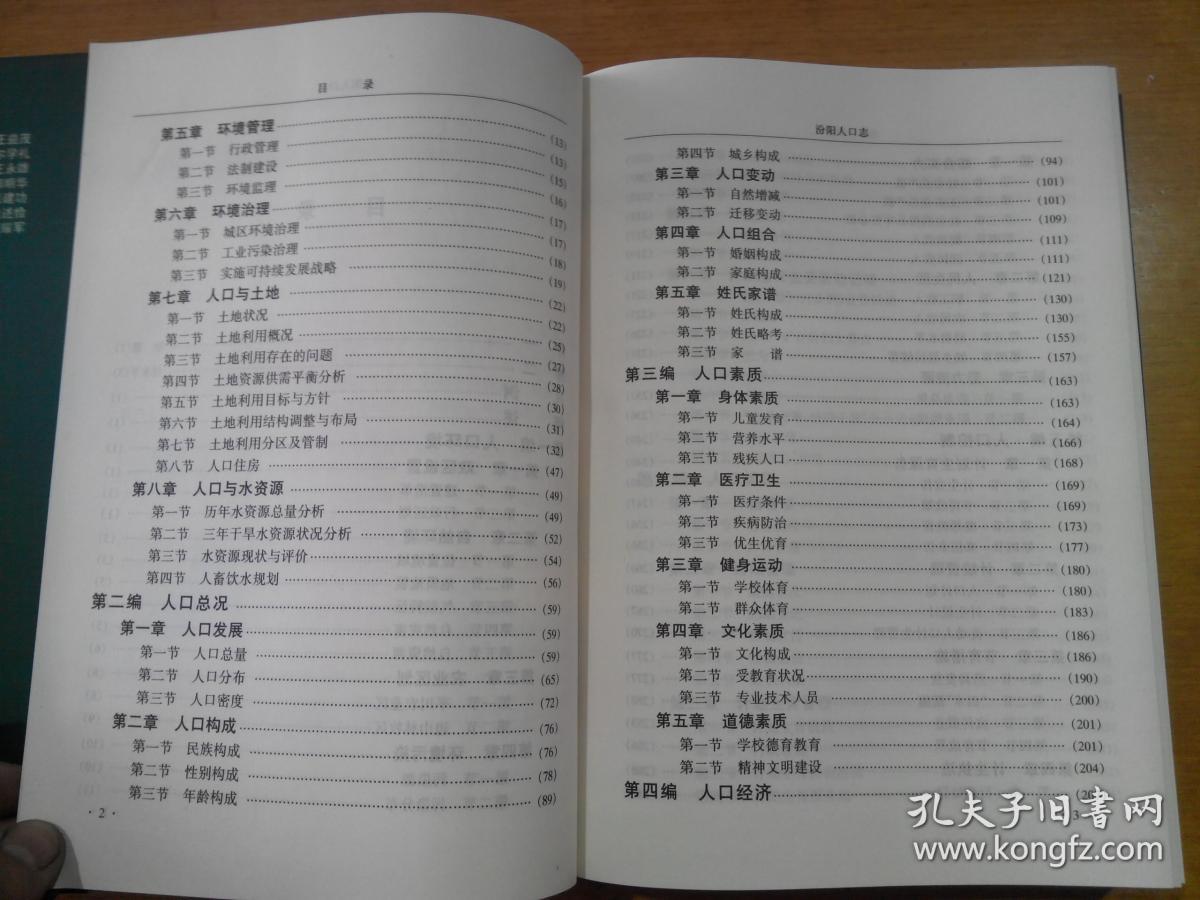 目 录
第五章 环境管理 (13)
第一节 行政管理 (13)
第二节 法制建设 (15)
第三节 环境监理 (16)
第六章 环境治理 (17)
第一节 城区环境治理 (17)
第二节 工业污染治理 (18)
第三节 实施可持续发展战略 (19)
第七章 人口与土地 (22)
第一节 土地状况 (22)
第二节 土地利用概况 (25)
第三节 土地利用存在的问题 (27)
第四节 土地资源供需平衡分析 (28)
第五节 土地利用目标与方针 (30)
第六节 土地利用结构调整与布局 (31)
第七节 土地利用分区及管制 (32)
第八节 人口住房 (47)
第八章 人口与水资源 (49)
第一节 历年水资源总量分析 (49)
第二节 三年干旱水资源状况分析 (52)
第三节 水资源现状与评价 (54)
第四节 人畜饮水规划 (56)
第二编 人口总况 (59)
第一章 人口发展 (59)
第一节 人口总量 (59)
第二节 人口分布 (65)
第三节 人口密度 (72)
第二章 人口构成 (76)
第一节 民族构成 (76)
第二节 性别构成 (78)
第三节 年龄构成 (89)
·2·
汾阳人口志
第四节 城乡构成 (94)
第三章 人口变动 (101)
第一节 自然增减 (101)
第二节 迁移变动 (109)
第四章 人口组合 (111)
第一节 婚姻构成 (111)
第二节 家庭构成 (121)
第五章 姓氏家谱 (130)
第一节 姓氏构成 (130)
第二节 姓氏略考 (155)
第三节 家 谱 (157)
第三编 人口素质 (163)
第一章 身体素质 (163)
第一节 儿童发育 (164)
第二节 营养水平 (166)
第三节 残疾人口 (168)
第二章 医疗卫生 (169)
第一节 医疗条件 (169)
第二节 疾病防治 (173)
第三节 优生优育 (177)
第三章 健身运动 (180)
第一节 学校体育 (180)
第二节 群众体育 (183)
第四章 文化素质 (186)
第一节 文化构成 (186)
第二节 受教育状况 (190)
第三节 专业技术人员 (200)
第五章 道德素质 (201)
第一节 学校德育教育 (201)
第二节 精神文明建设 (204)
第四编 人口经济
3
孔夫子旧书网
www.kongfz.com